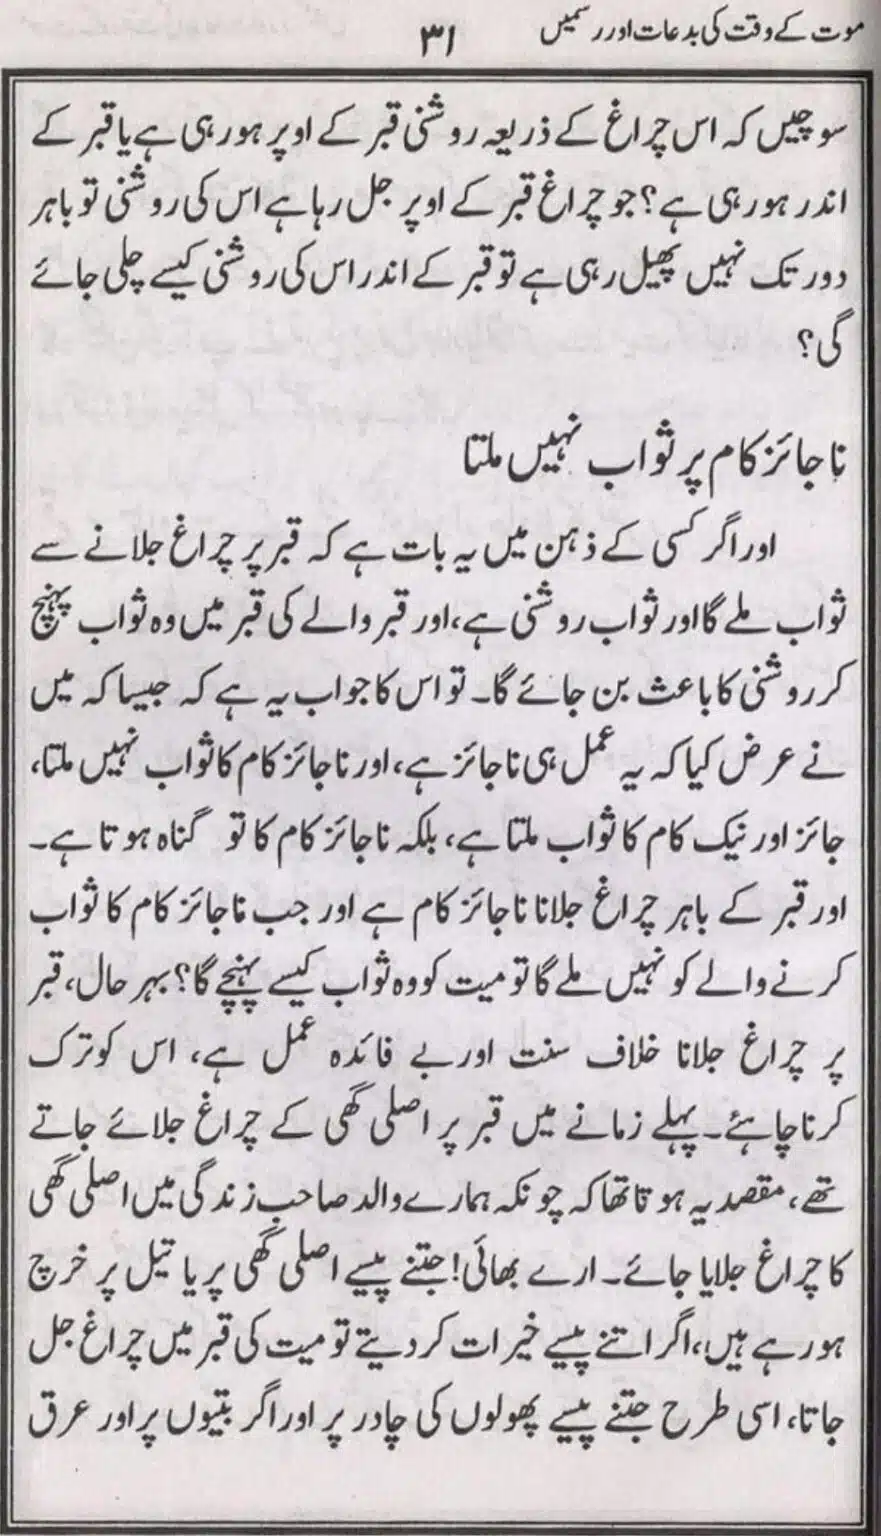 موت کے وقت کی بدعات اور رسمیں
۳۱
سوچیں کہ اس چراغ کے ذریعہ روشنی قبر کے اوپر ہو رہی ہے یا قبر کے
اندر ہو رہی ہے؟ جو چراغ قبر کے اوپر جل رہا ہے اس کی روشنی تو باہر
دور تک نہیں پھیل رہی ہے تو قبر کے اندر اس کی روشنی کیسے چلی جائے
گی؟
ناجائز کام پر ثواب نہیں ملتا
اور اگر کسی کے ذہن میں یہ بات ہے کہ قبر پر چراغ جلانے سے
ثواب ملے گا اور ثواب روشنی ہے، اور قبر والے کی قبر میں وہ ثواب پہنچ
کر روشنی کا باعث بن جائے گا۔ تو اس کا جواب یہ ہے کہ جیسا کہ میں
نے عرض کیا کہ یہ عمل ہی ناجائز ہے، اور ناجائز کام کا ثواب نہیں ملتا،
جائز اور نیک کام کا ثواب ملتا ہے، بلکہ ناجائز کام کا تو گناہ ہوتا ہے۔
اور قبر کے باہر چراغ جلانا ناجائز کام ہے اور جب ناجائز کام کا ثواب
کرنے والے کو نہیں ملے گا تو میت کو وہ ثواب کیسے پہنچے گا؟ بہر حال، قبر
پر چراغ جلانا خلاف سنت اور بے فائدہ عمل ہے، اس کو ترک
کرنا چاہئے۔ پہلے زمانے میں قبر پر اصلی گھی کے چراغ جلائے جاتے
تھے، مقصد یہ ہوتا تھا کہ چونکہ ہمارے والد صاحب زندگی میں اصلی گھی
کا چراغ جلایا جائے۔ ارے بھائی! جتنے پیسے اصلی گھی پر یا تیل پر خرچ
ہو رہے ہیں، اگر اتنے پیسے خیرات کر دیتے تو میت کی قبر میں چراغ جل
جاتا، اسی طرح جتنے پیسے پھولوں کی چادر پر اور اگر بتیوں پر اور عرق